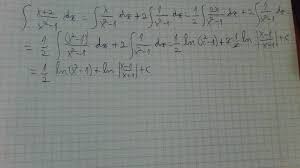 ∫ (x+2)/(x²-1) dx = ∫ x/(x²-1) dx + 2 ∫ 1/(x²-1) dx = 1/2 ∫ 2x/(x²-1) dx + 2 ∫ 1/(x²-1) dx
= 1/2 ∫ (x²-1)'/(x²-1) dx + 2 ∫ 1/(x²-1) dx = 1/2 ln(x²-1) + 2 1/2 ln |(x-1)/(x+1)| + c
= 1/2 ln(x²-1) + ln |(x-1)/(x+1)| + c